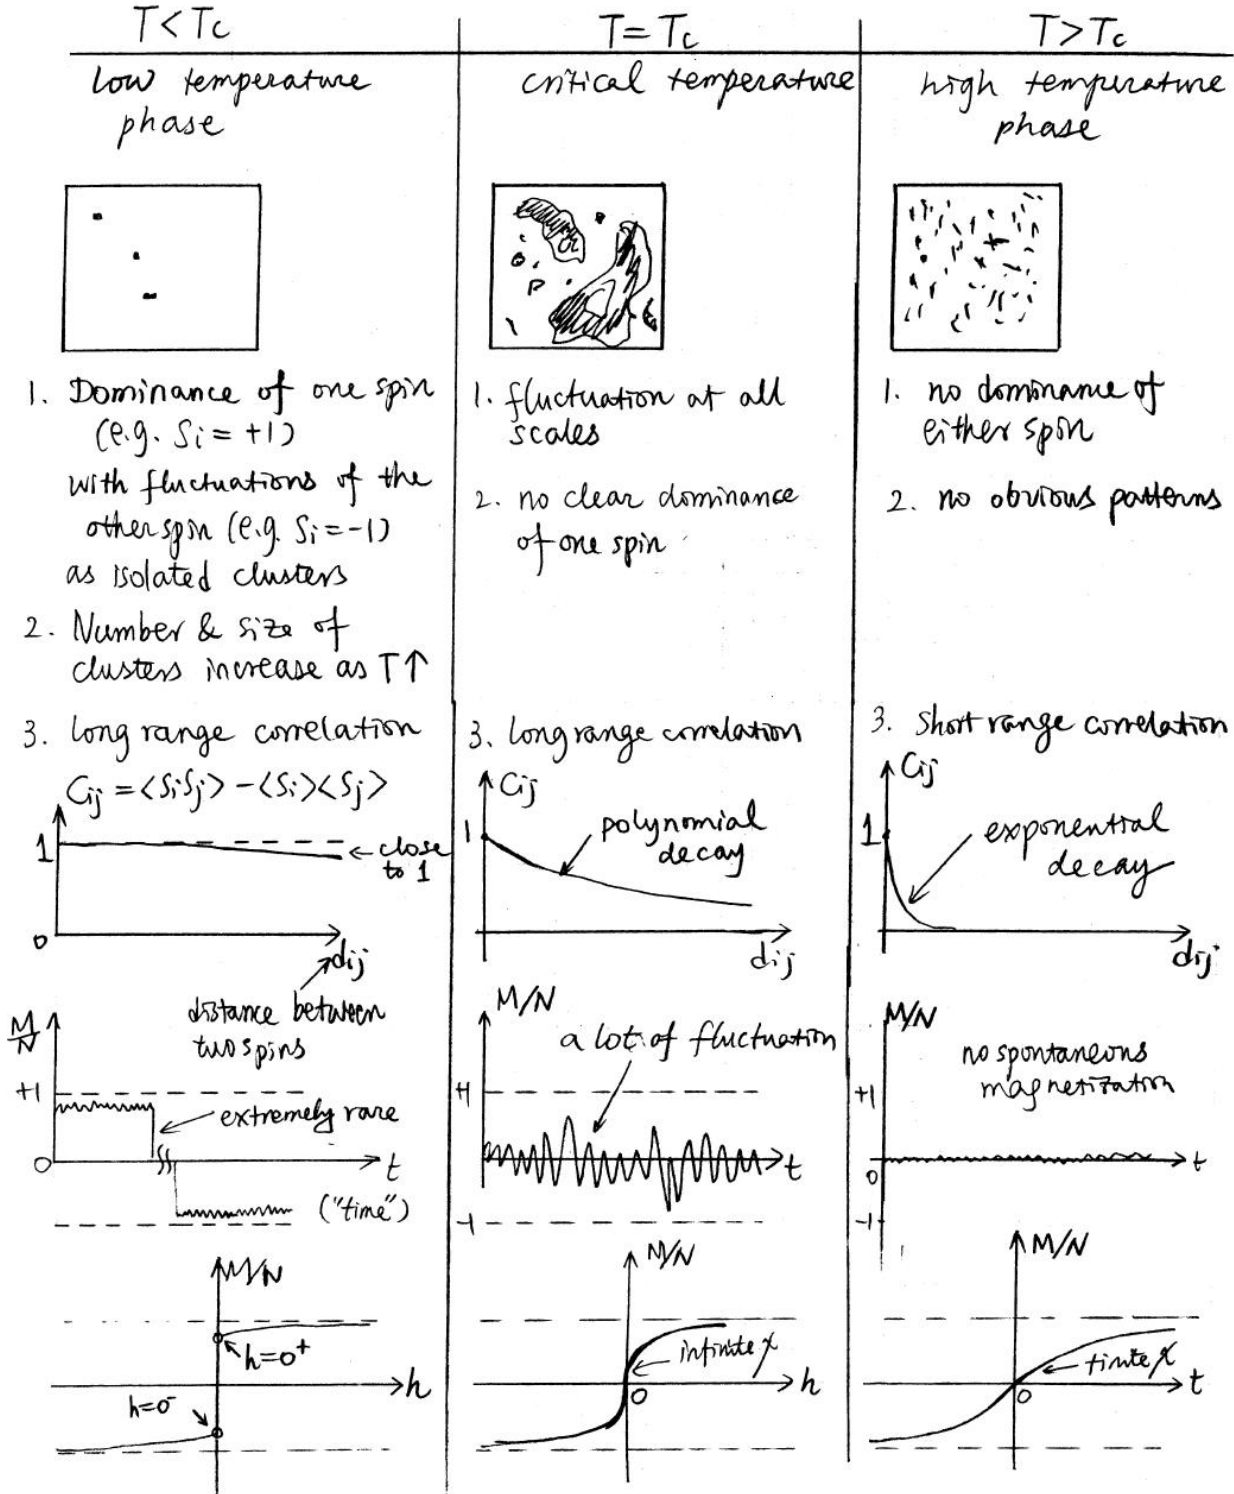 T < Tc
low temperature
phase
1. Dominance of one spin
(e.g. Si = +1)
with fluctuations of the
other spin (e.g. Si = -1)
as isolated clusters
2. Number & size of
clusters increase as T↑
3. Long range correlation
Cij = <SiSj> - <Si><Sj>
1
← close
to 1
0
dij
distance between
two spins
M/N
+1
extremely rare
0
t
("time")
M/N
h=0⁺
h
h=0⁻
T = Tc
critical temperature
1. fluctuation at all
scales
2. no clear dominance
of one spin
3. Long range correlation
Cij
1
polynomial
decay
dij
M/N
a lot of fluctuation
+1
t
-1
M/N
infinite χ
0
h
T > Tc
high temperature
phase
1. no dominance of
either spin
2. no obvious patterns
3. Short range correlation
Cij
1
exponential
decay
dij
M/N
no spontaneous
magnetization
+1
0
t
-1
M/N
finite χ
0
t